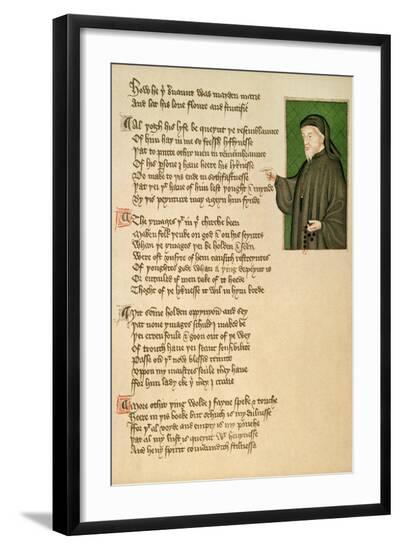 How he þi seruaunt was mayden marie
And lat his loue floure and fructifie
Al þogh his lyfe be queynt þe resemblaunce
Of him haþ in me so fressh lyflynesse
Þat to putte othir men in remembraunce
Of his persone I haue heere his lyknesse
Do make to þis ende in sothfastnesse
Þat þei þt haue of him lest þought & mynde
By þis peynture may ageyn him fynde
The ymages þt in þe chirche been
Maken folk þenke on god & on his seyntes
Whan þe ymages þei be holden & seen
Were oft vnsyte of hem causith restreyntes
Of þoughtes gode whan a þing depeynt is
Or entailed if men take of it heede
Thoght of þe lyknesse it wil in hym brede
Yit somme holden oppynyoun and sey
Þat none ymages schuld I maked be
Þei erren foule & goon out of þe wey
Of trouth haue þei scant sensibilite
Passe ouer þt now blessid trinite
Vppon my maistres soule mercy haue
For him lady eke þi mercy I craue
More othir þing wolde I fayne speke & touche
Heere in þis booke but schuch is my dulnesse
For þt al voyde and empty is my pouche
Þat al my lust is queynt wt heuynesse
And heuy spirit comaundith stilnesse